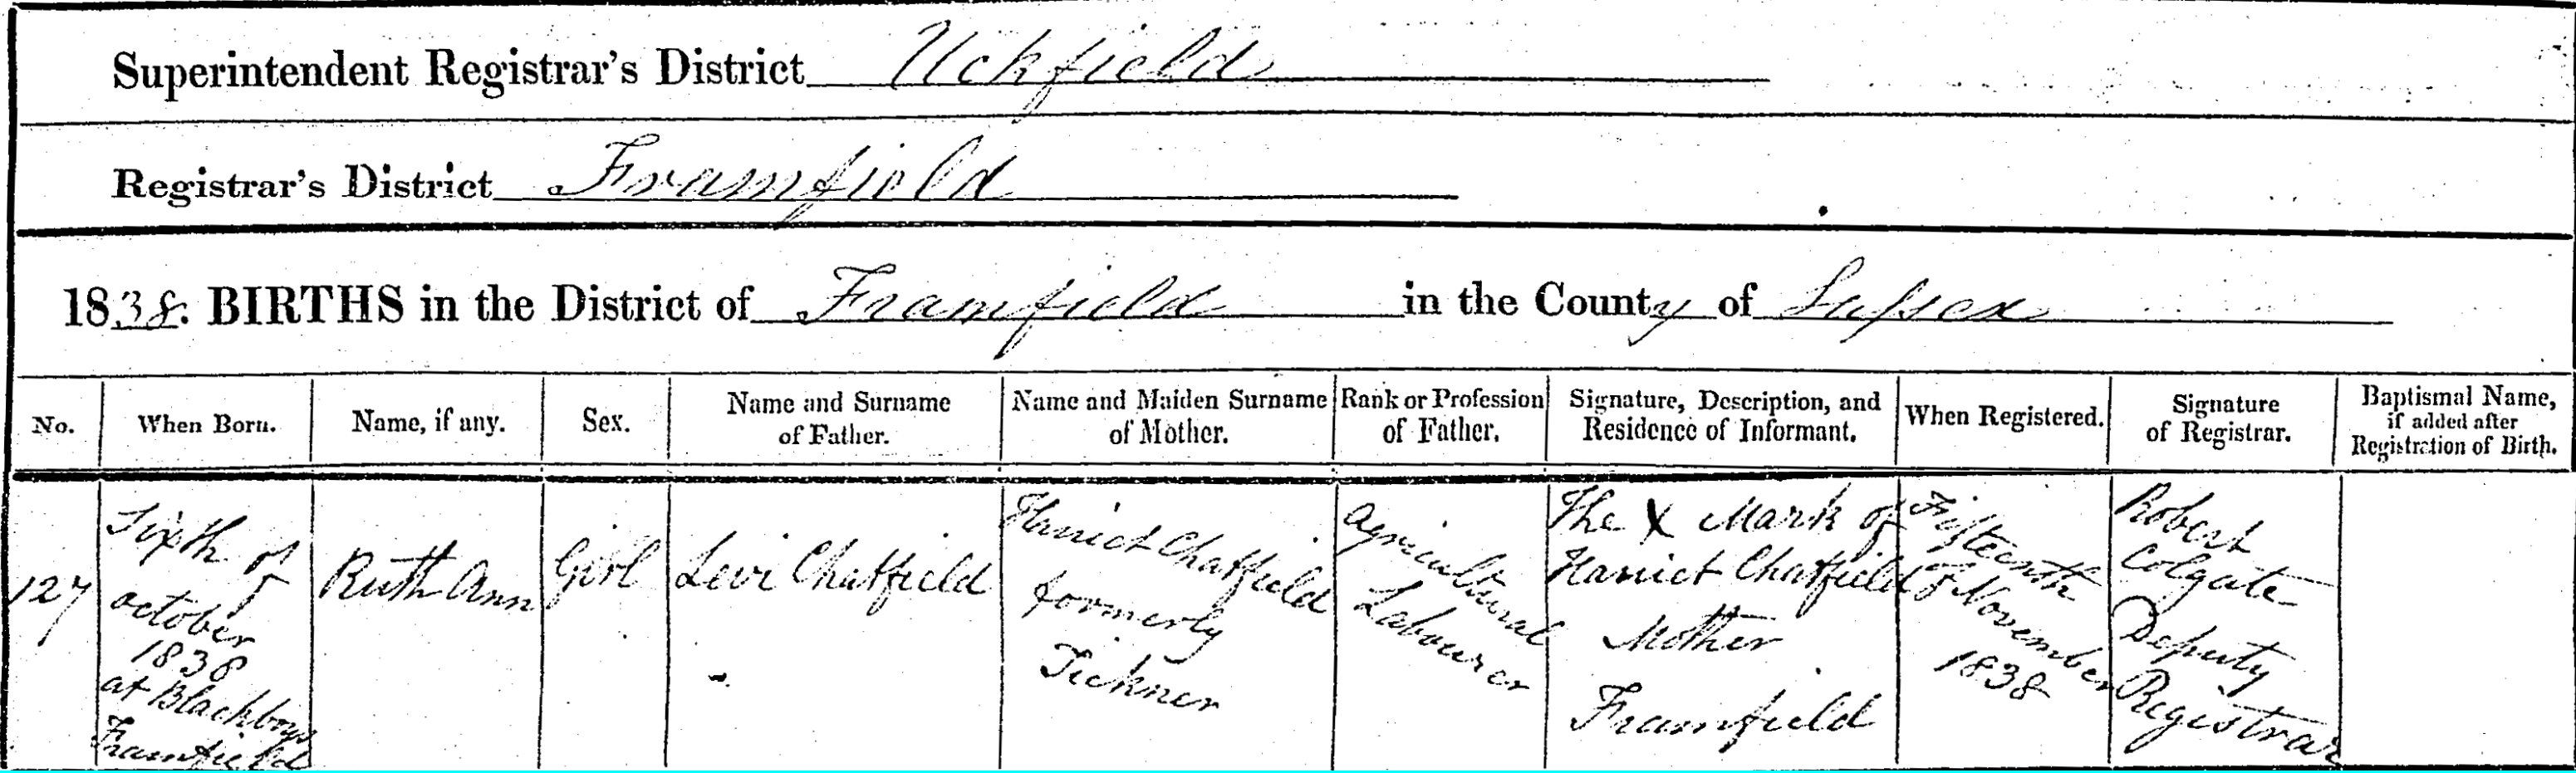 Superintendent Registrar's District Uckfield
Registrar's District Framfield
1838. BIRTHS in the District of Framfield in the County of Sussex
No.
When Born.
Name, if any.
Sex.
Name and Surname
of Father.
Name and Maiden Surname
of Mother.
Rank or Profession
of Father.
Signature, Description, and
Residence of Informant.
When Registered.
Signature
of Registrar.
Baptismal Name,
if added after
Registration of Birth.
127
Sixth of
october
1838
at Blackboys
Framfield
Ruth Ann
Girl
Levi Chatfield
Harriet Chatfield
formerly
Tickner
Agricultural
Labourer
The X Mark of
Harriet Chatfield
Mother
Framfield
Fifteenth
of November
1838
Robert
Colgate
Deputy
Registrar